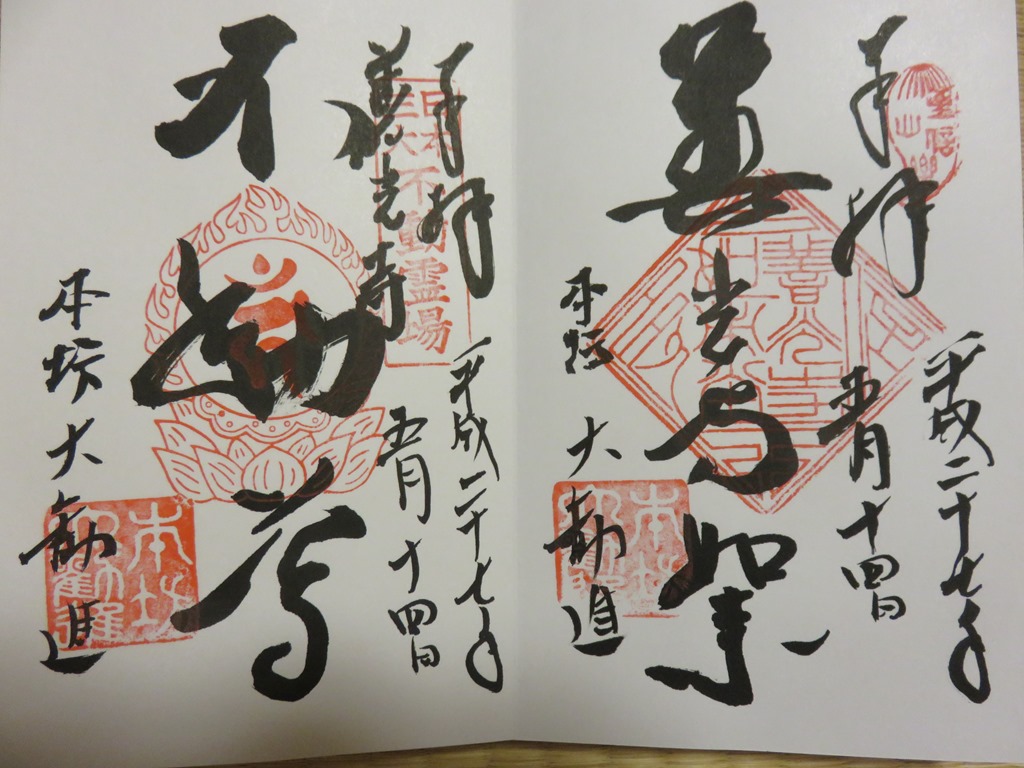 奉拝
平成二十七年
五月十四日
善光寺如来
本坊 大勧進
奉拝
平成二十七年
五月十四日
善光寺
日本
三大不動霊場
不動尊
本坊 大勧進